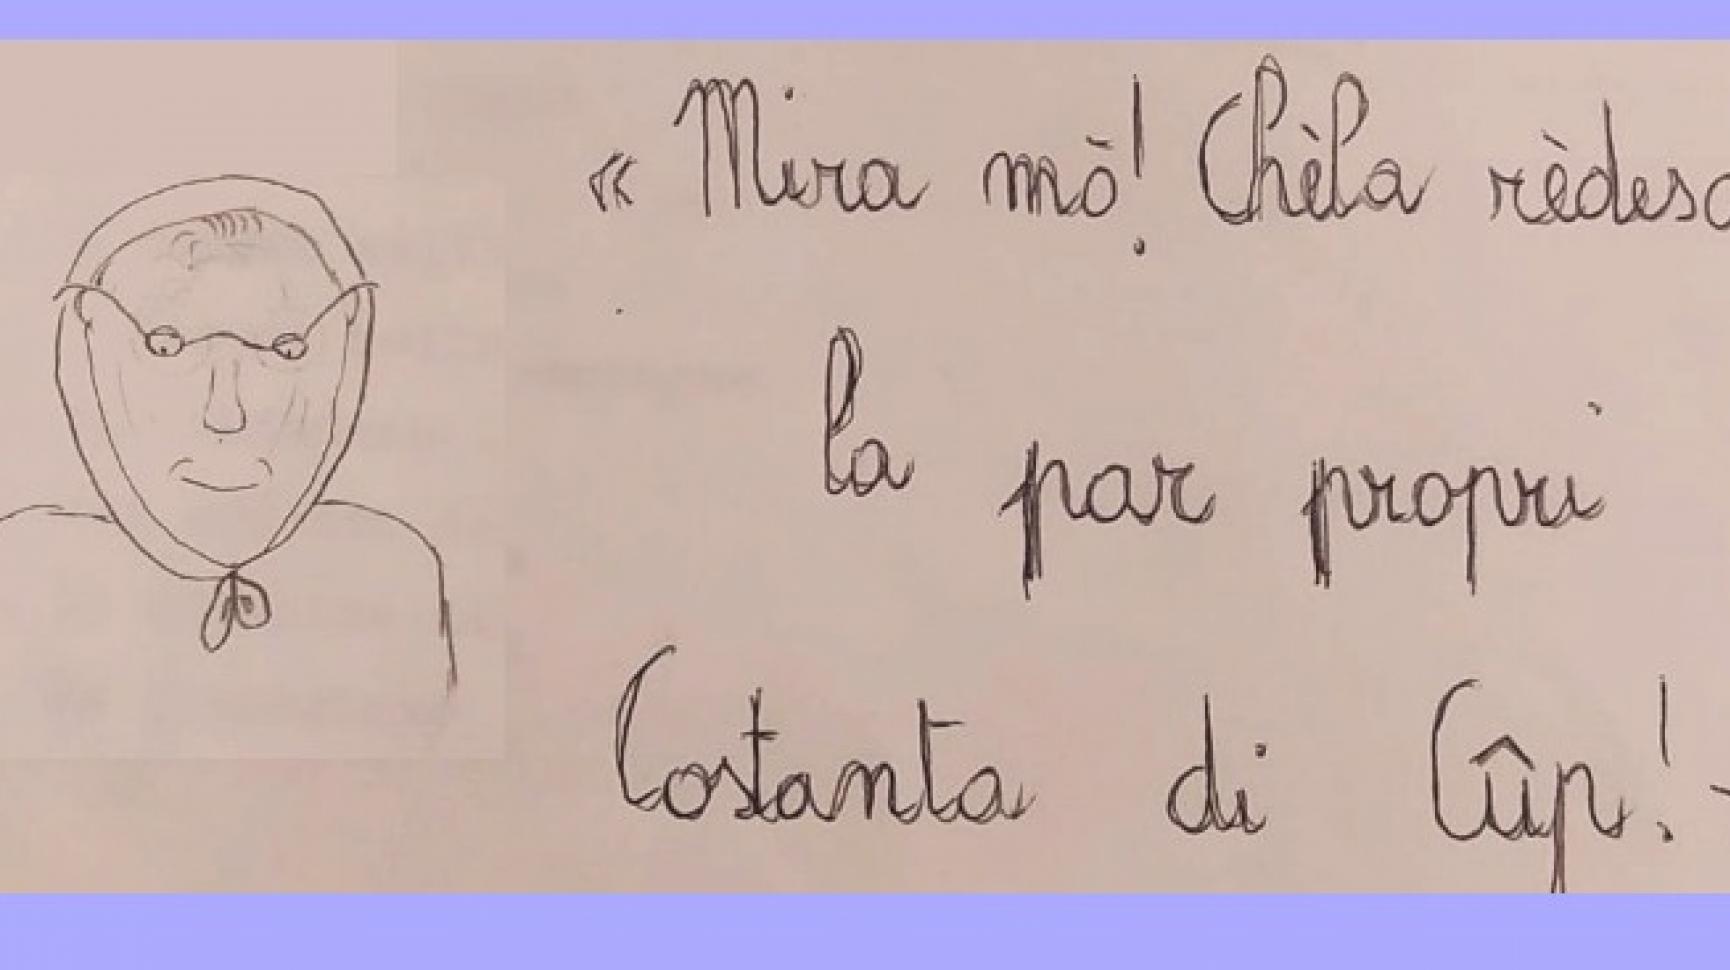 « Mira mò! Chèla rèdesa
la par propri
Costanta di Cûp!